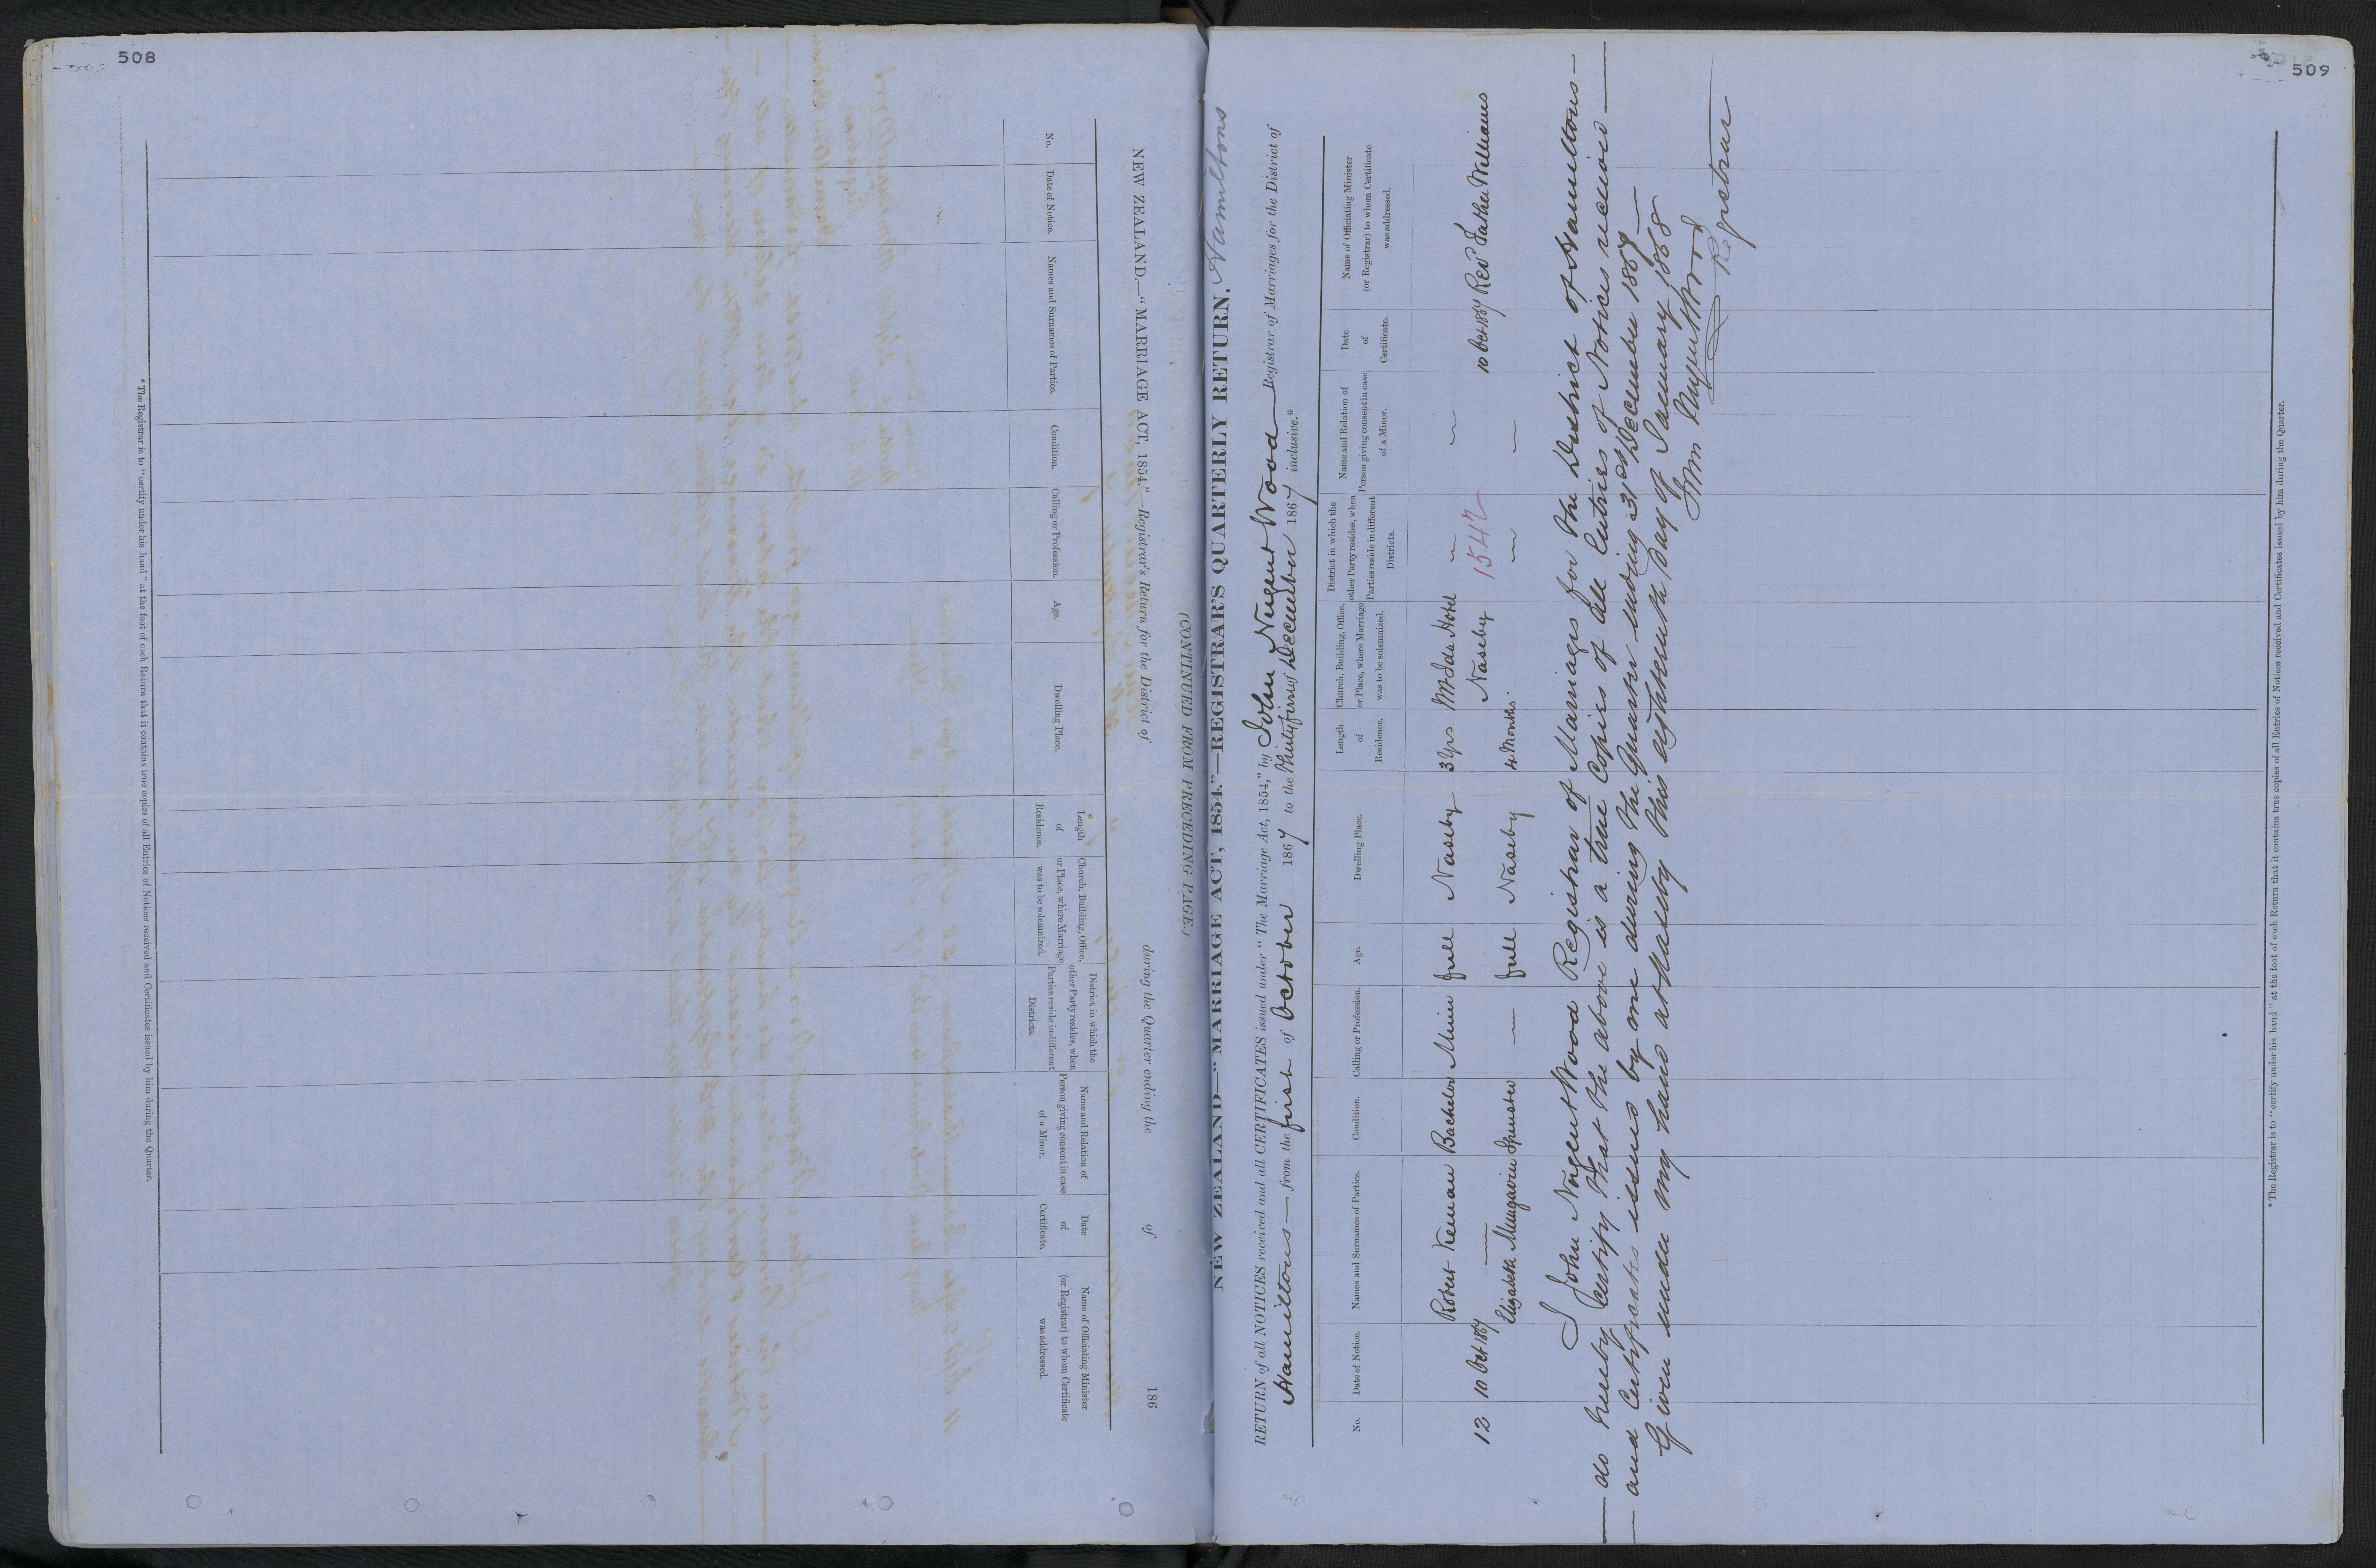 508
NEW ZEALAND.—"MARRIAGE ACT, 1854."—Registrar's Return for the District of during the Quarter ending the of 186
(CONTINUED FROM PRECEDING PAGE.)
No.
Date of Notice.
Names and Surnames of Parties.
Condition.
Calling or Profession.
Age.
Dwelling Place.
Length
of
Residence.
Church, Building, Office,
or Place, where Marriage
was to be solemnized.
District in which the
other Party resides, when
Parties reside in different
Districts.
Name and Relation of
Person giving consent in case
of a Minor.
Date
of
Certificate.
Name of Officiating Minister
(or Registrar) to whom Certificate
was addressed.
* The Registrar is to "certify under his hand" at the foot of each Return that it contains true copies of all Entries of Notices received and Certificates issued by him during the Quarter.
509
NEW ZEALAND—"MARRIAGE ACT, 1854."—REGISTRAR'S QUARTERLY RETURN. Hamiltons
RETURN of all NOTICES received and all CERTIFICATES issued under "The Marriage Act, 1854," by John Nugent Wood Registrar of Marriages for the District of
Hamiltons — from the first of October 1867 to the Thirtyfirst of December 1867 inclusive.*
No.
Date of Notice.
Names and Surnames of Parties.
Condition.
Calling or Profession.
Age.
Dwelling Place.
Length
of
Residence.
Church, Building, Office,
or Place, where Marriage
was to be solemnized.
District in which the
other Party resides, when
Parties reside in different
Districts.
Name and Relation of
Person giving consent in case
of a Minor.
Date
of
Certificate.
Name of Officiating Minister
(or Registrar) to whom Certificate
was addressed.
Robert Kernan Bachelor Miner full Naseby 3 Yrs Mt Ida Hotel — —
12 10 Oct 1867 — Naseby 1547 10 Oct 1867 Rev Father Williams
Elizabeth Mungavin Spinster — full Naseby 4 Months. — —
I John Nugent Wood Registrar of Marriages for the District of Hamiltons —
— do hereby certify that the above is a true Copies of all Entries of Notices received —
— and Certificates issued by me during the Quarter ending 31st December 1867 —
Given under my hand at Naseby this eighteenth day of January 1868
Jno Nugent Wood
Registrar
* The Registrar is to "certify under his hand" at the foot of each Return that it contains true copies of all Entries of Notices received and Certificates issued by him during the Quarter.